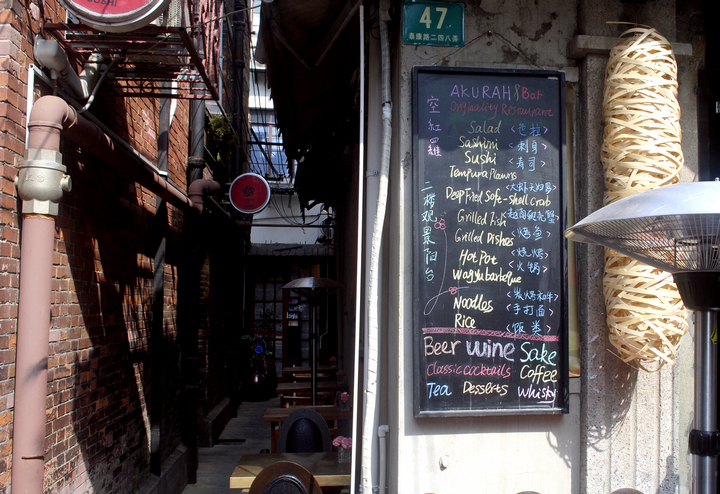 SUSHI
47
泰康路二四八弄
AKURAH Bar
Originality Restaurant
空 紅 羅
Salad <色拉>
Sashimi <刺身>
Sushi <寿司>
Tempura Prawns
Deep Fried Sofe-shell crab
Grilled Fish
Grilled Dishes <烤鱼>
Hot Pot <烧烤>
Wagyu barbeque <火锅>
Noodles <手打面>
Rice <饭类>
二楼 观景阳台
Beer wine Sake
Classic cocktails Coffee
Tea Desserts Whisky